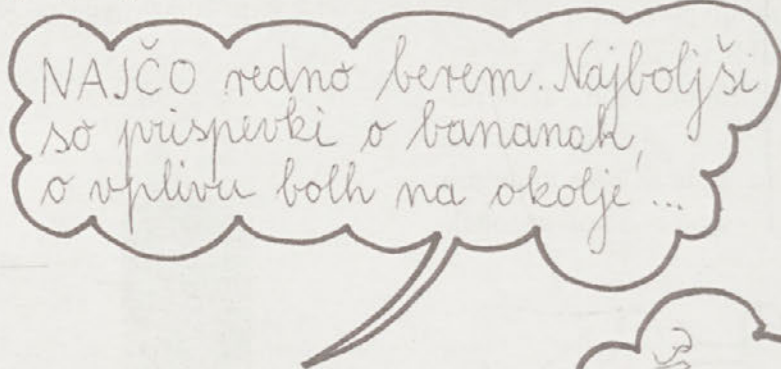 NAJČO redno berem. Najboljši
so prispevki o bananah,
o vplivu bolh na okolje ...